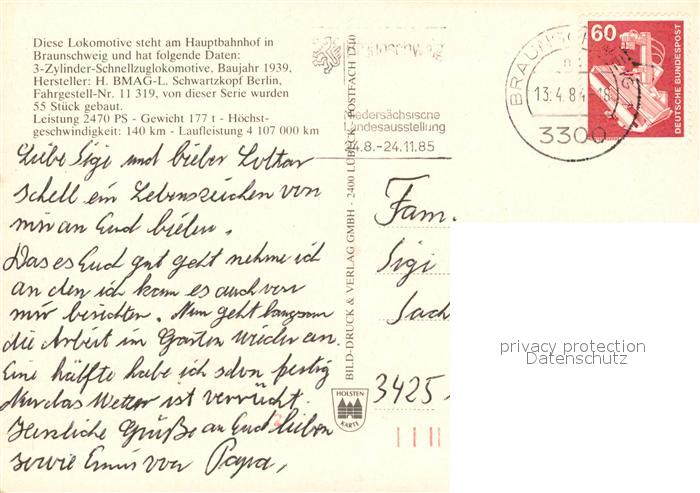 Diese Lokomotive steht am Hauptbahnhof in
Braunschweig und hat folgende Daten:
3-Zylinder-Schnellzuglokomotive, Baujahr 1939,
Hersteller: H. BMAG-L. Schwartzkopf Berlin,
Fahrgestell-Nr. 11 319, von dieser Serie wurden
55 Stück gebaut.
Leistung 2470 PS - Gewicht 177 t - Höchst-
geschwindigkeit: 140 km - Laufleistung 4 107 000 km
Liebe Sigi und lieber Lothar
schell ein Lebenszeichen von
mir an Eud
Das es Eud gut geht nehme ich
an den ich kann es auch von
mir berichten. Nun geht langsam
die Arbeit in Garten wieder an.
Eine hälfte habe ich schon fertig
Nur das Wetter ist verrückt.
Herzliche Grüße an Eud lieben
sowie von Papa,
BILD-DRUCK & VERLAG GMBH - 2400 LÜBECK - POSTFACH 1740
HOLSTEN
KARTE
Braunschweig
Niedersächsische
Landesausstellung
24.8.-24.11.85
BRAUNSCHWEIG
13.4.84 - 18
3300
60
DEUTSCHE BUNDESPOST
Fam.
Sigi
Sach
3425
privacy protection
Datenschutz